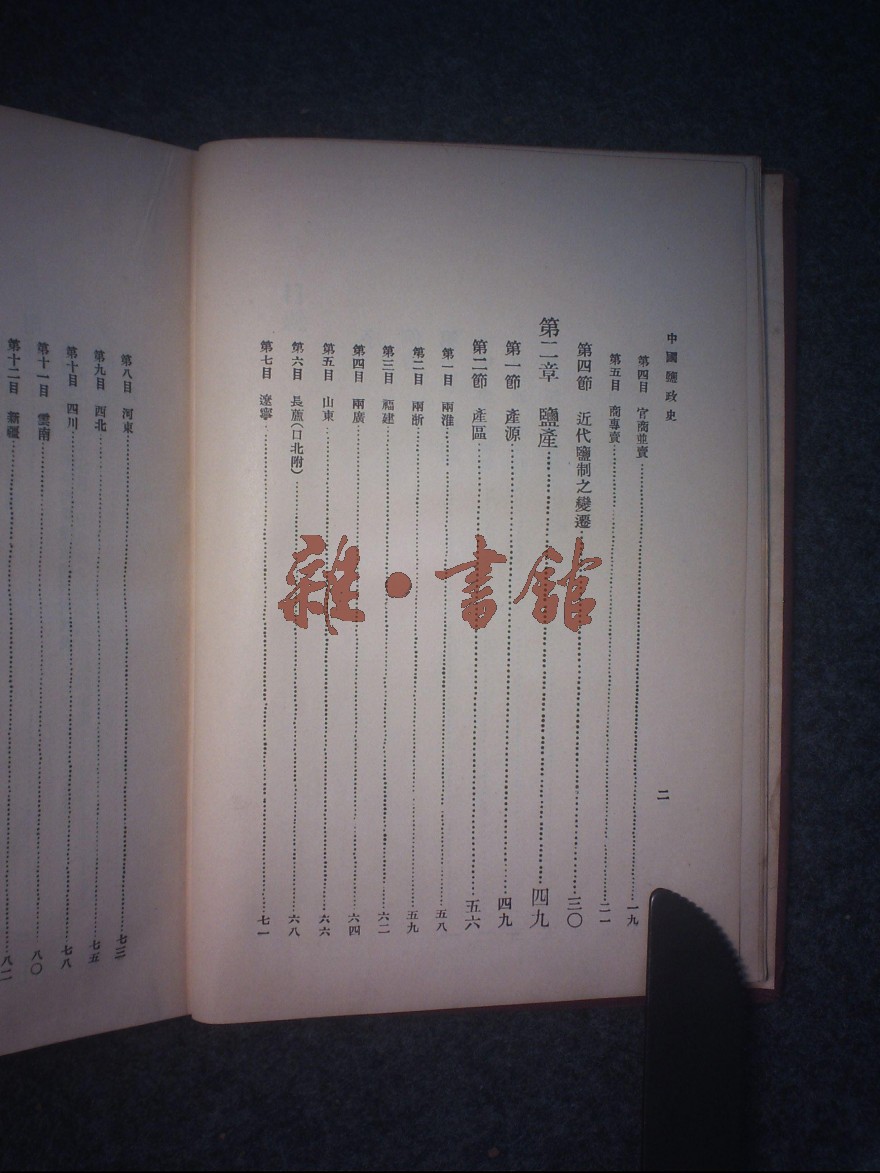 中國鹽政史
二
第四目 官商並賣……一九
第五目 商專賣……二一
第四節 近代鹽制之變遷……三〇
第二章 鹽產……四九
第一節 產源……四九
第二節 產區……五六
第一目 兩淮……五八
第二目 兩浙……五九
第三目 福建……六二
第四目 兩廣……六四
第五目 山東……六六
第六目 長蘆(口北附)……六八
第七目 遼寧……七一
第八目 河東……七三
第九目 西北……七五
第十目 四川……七八
第十一目 雲南……八〇
第十二目 新疆……八二
雜·書館